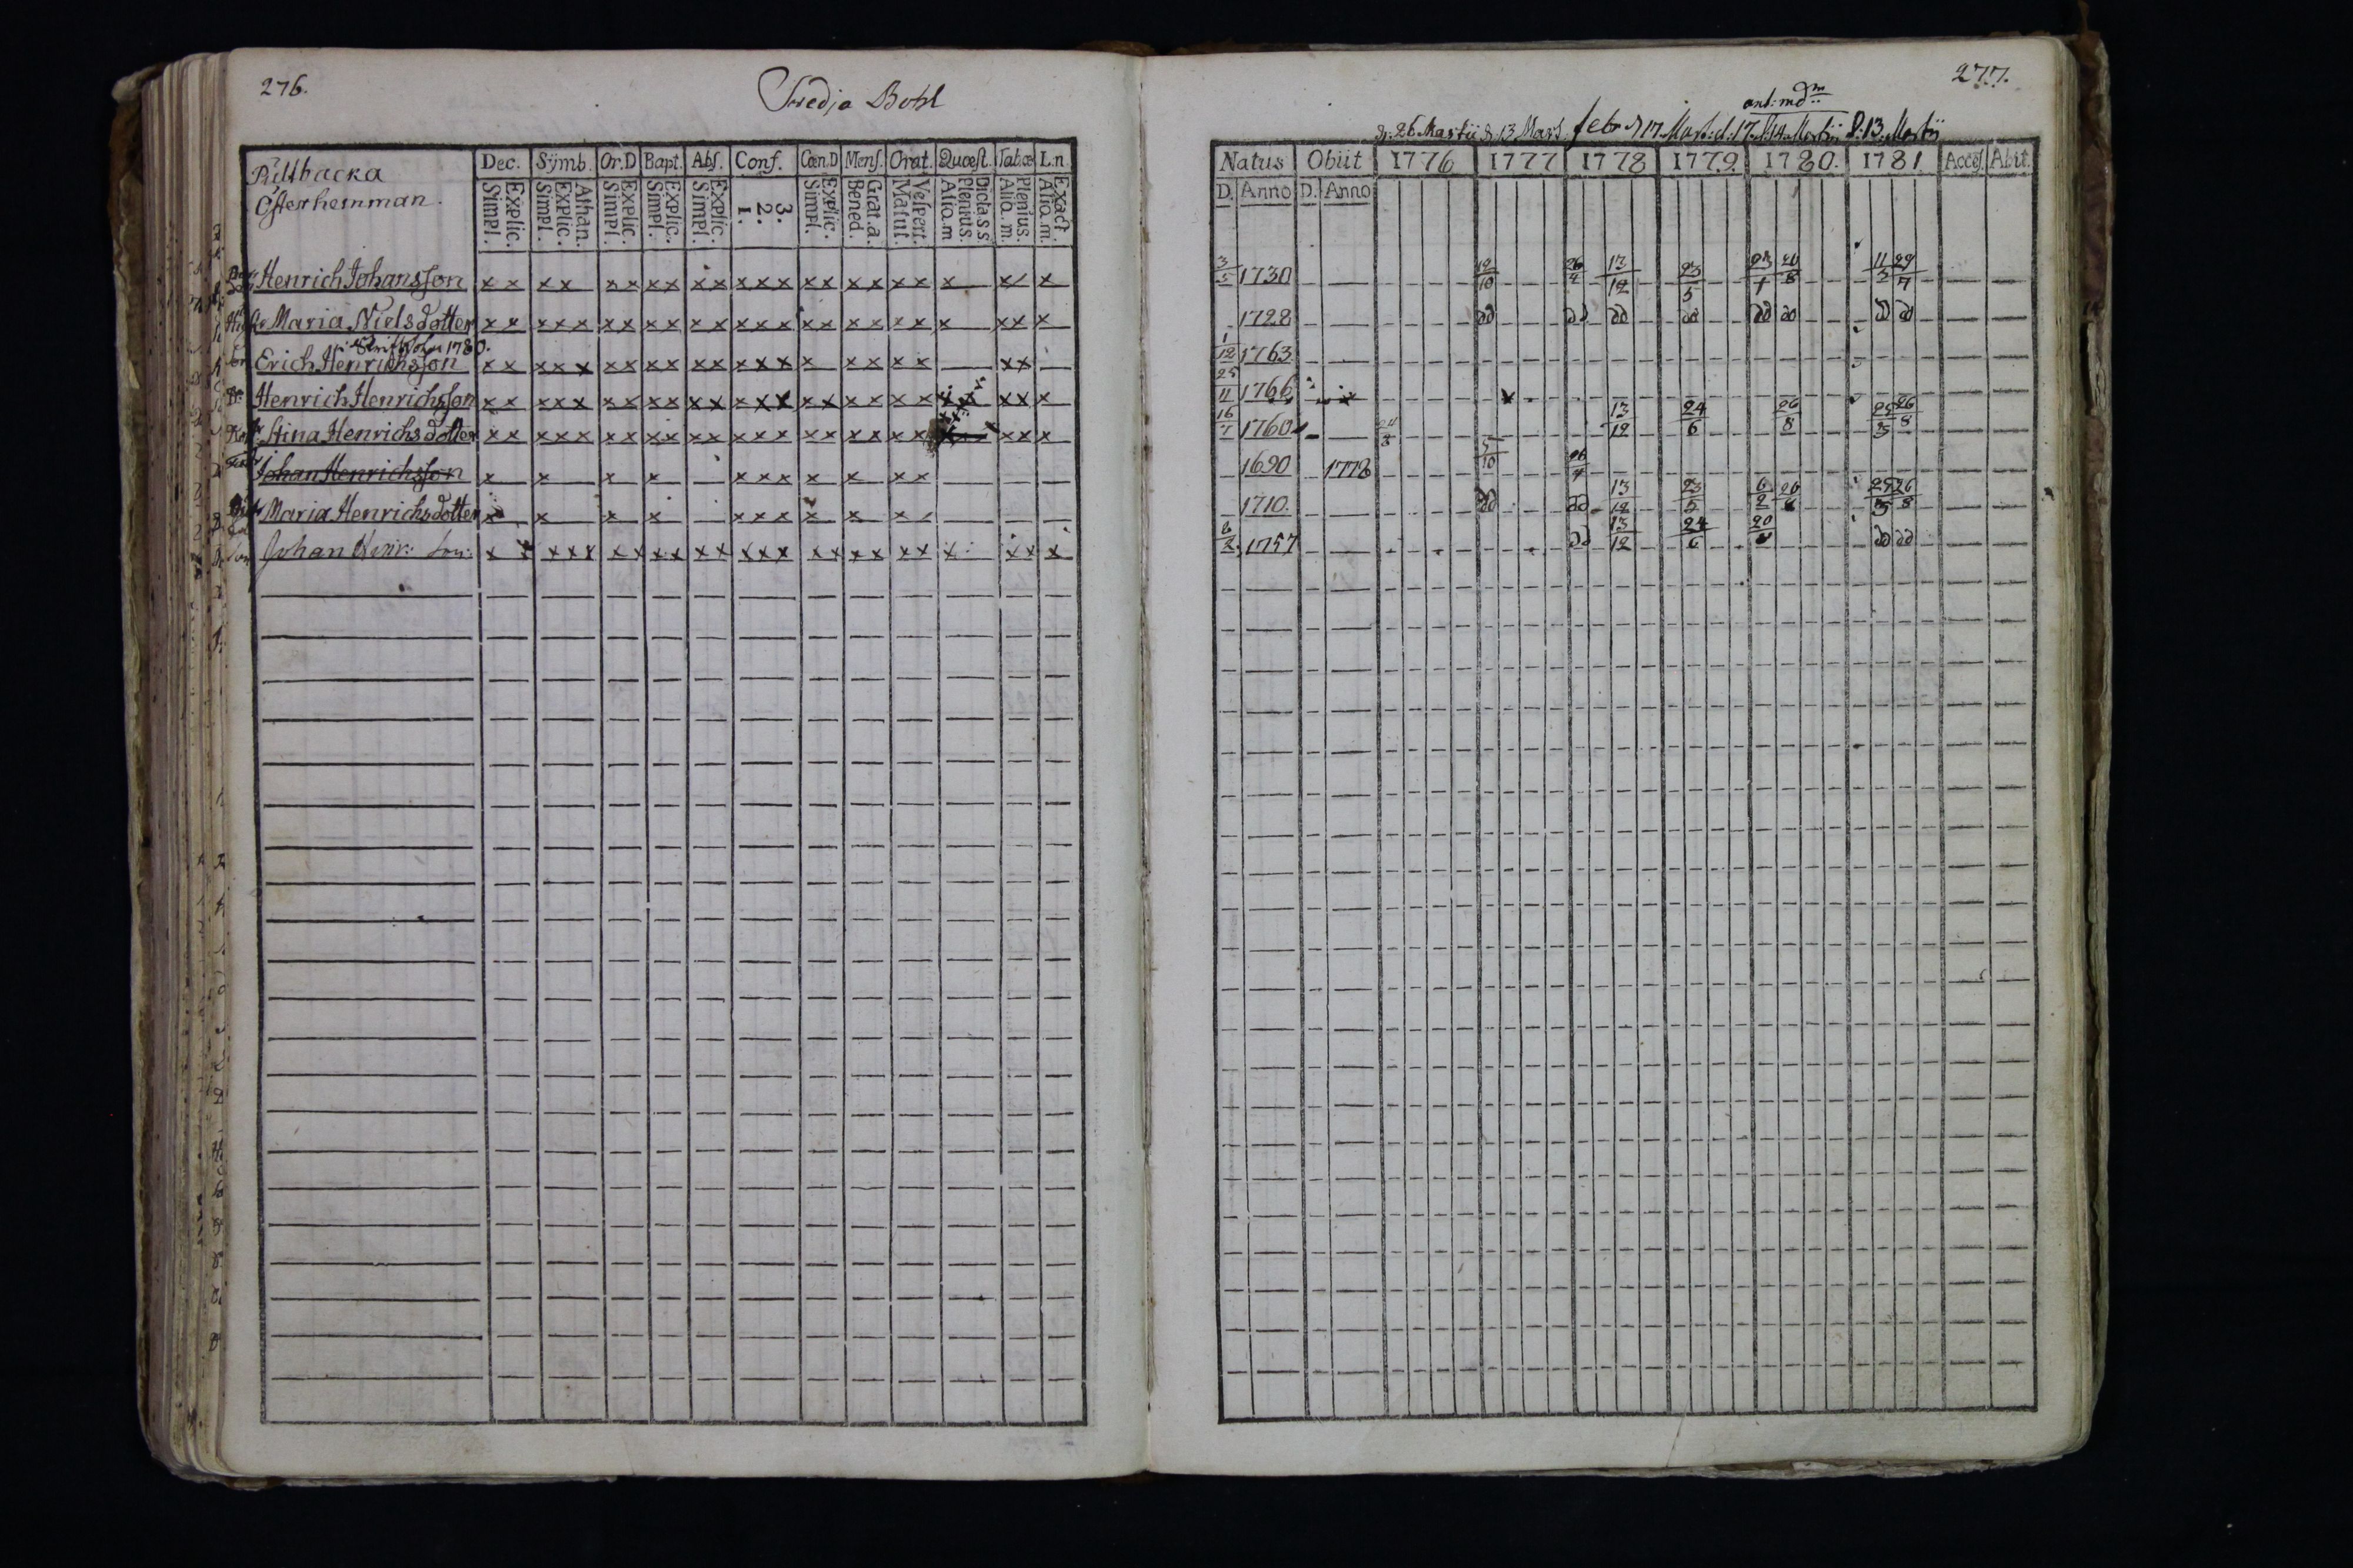 276.
Tredja Bohl
Pältbacka
Österhemman.
Dec. Symb. Or.D Bapt. Abs. Conf. Cœn.D Mens. Orat. Quœst. Tab.œ L.n
Simpl. Explic. Simpl. Explic. Athan. Simpl. Explic. Simpl. Explic. Simpl. Explic. 1. 2. 3. Simpl. Explic. Bened. Grat. a. Matut. Vespert. Aliq. m Plenius. Dicta s.s. Aliq. m. Plenius. Aliq. m. Exact.
Henrich Johansson x x x x x x x x x x x x x x x x x x x x x x x
Hu Maria Nielsdotter x x x x x x x x x x x x x x x x x x x x x x x x
Skriftskolan 1780.
Son Erich Henrichsson x x x x x x x x x x x x x x x x x x x x x x
Dr. Henrich Henrichsson x x x x x x x x x x x x x x x x x x x x x x x x x
Stina Henrichsdotter x x x x x x x x x x x x x x x x x x x x x x x x
Johan Henrichsson x x x x x x x x x x x
Maria Henrichsdotter x x x x x x x x x x x
Son Johan Henr: Son: x x x x x x x x x x x x x x x x x x x x x x x x
277.
ant: md:m
d. 26 Martii d. 13 Mart. febr d 17 Mart: d. 17. d. 14 Martii D. 13. Martii
Natus Obiit 1776 1777 1778 1779. 1780. 1781. Acces. Abit.
D. Anno D. Anno
3/5 1730 12/10 26/4 13/12 23/5 23/1 20/8 11/3 29/7
1728 dd dd dd dd dd dd dd dd
1/12 1763
25/11 1766
16/7 1760 24/8 13/12 24/6 26/8 25/3 26/8
1690 1778 5/10 26/4
1710. dd dd 13/12 23/5 6/2 26/8 25/3 26/8
6/2 1757 dd 13/12 24/6 20/8 dd dd